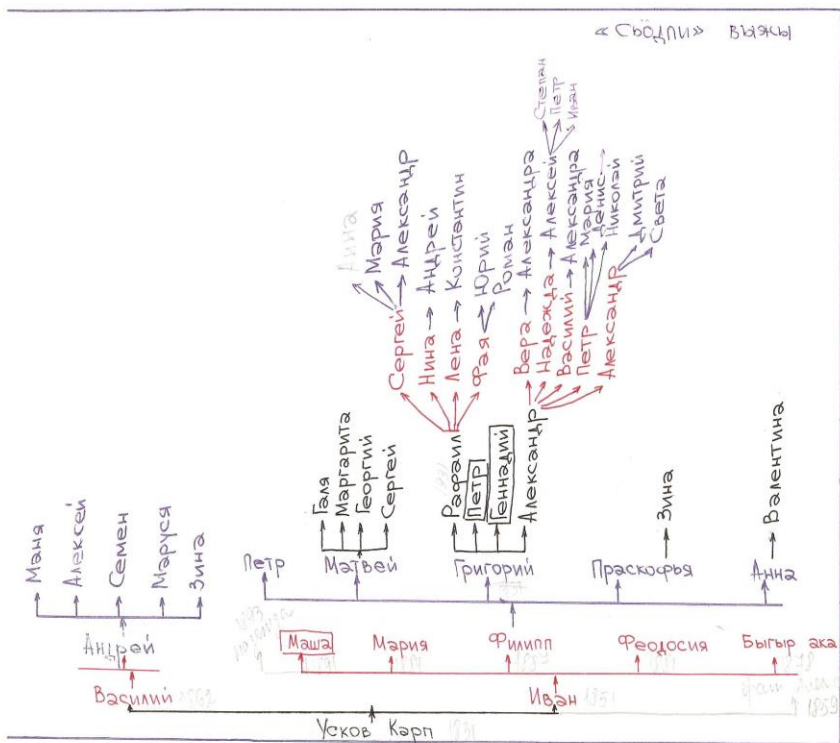 «Сьöдпи» выжы
Степан
Петр
Иван
Анна
Мария
Александр
Андрей
Константин
Юрий
Роман
Александра
Алексей
Александра
Мария
Денис
Николай
Дмитрий
Света
Сергей
Нина
Лена
Фая
Вера
Надежда
Василий
Петр
Александр
Галя
Маргарита
Георгий
Сергей
Рафаил
Петр
Геннадий
Александр
Зина
Валентина
Маня
Алексей
Семен
Маруся
Зина
Петр Матвей Григорий Прасковья Анна
Андрей
Маша Мария Филипп Феодосия Быгыр ака
Василий Иван 1851
1859
Усков Карп 1831